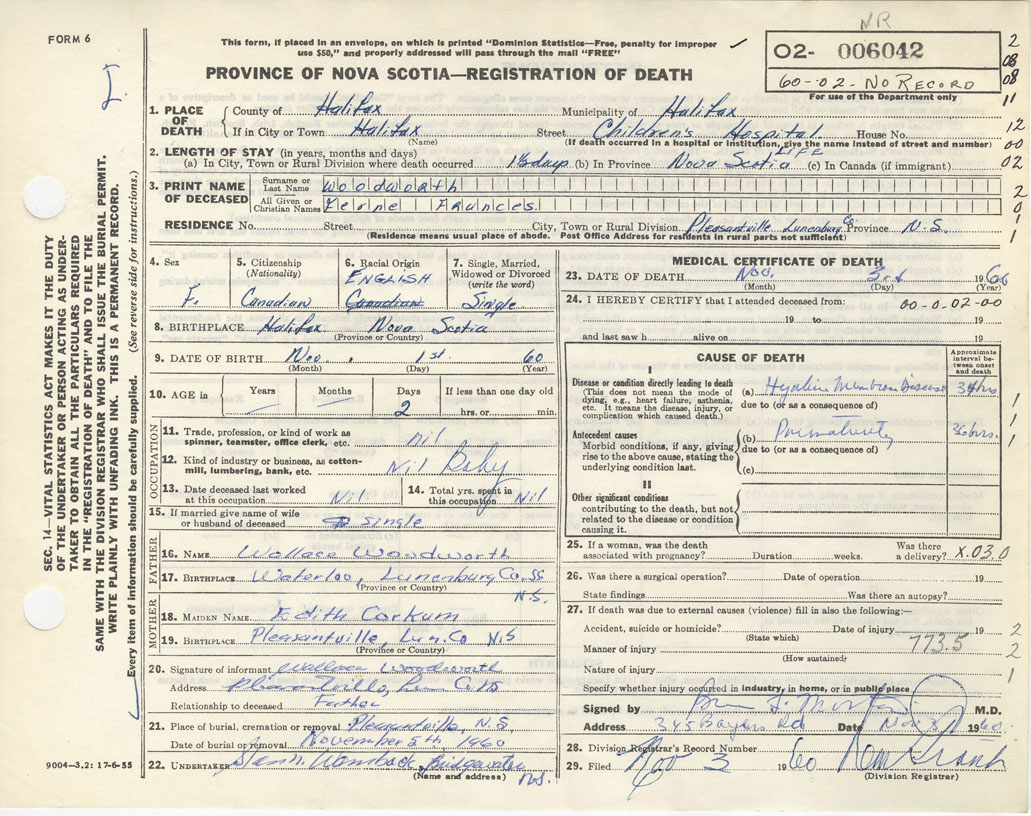 NR
FORM 6
This form, if placed in an envelope, on which is printed "Dominion Statistics—Free, penalty for improper
use $50," and properly addressed will pass through the mail "FREE"
O2- 006042
60-02-No Record
For use of the Department only
PROVINCE OF NOVA SCOTIA—REGISTRATION OF DEATH
2
08
08
11
12
00
02
2
0
1
1
1. PLACE OF DEATH
County of Halifax Municipality of Halifax
If in City or Town Halifax Street Children's Hospital House No.
(Name) (If death occurred in a hospital or institution, give the name instead of street and number)
2. LENGTH OF STAY (in years, months and days)
(a) In City, Town or Rural Division where death occurred 1½ days (b) In Province Nova Scotia LIFE (c) In Canada (if immigrant)
3. PRINT NAME OF DECEASED
Surname or Last Name Woodworth
All Given or Christian Names Frances
RESIDENCE No. Street City, Town or Rural Division Pleasantville Lunenburg Co. Province N.S.
(Residence means usual place of abode. Post Office Address for residents in rural parts not sufficient)
4. Sex
F.
5. Citizenship (Nationality)
Canadian
6. Racial Origin
ENGLISH
Canadian
7. Single, Married, Widowed or Divorced (write the word)
Single
8. BIRTHPLACE Halifax Nova Scotia
(Province or Country)
9. DATE OF BIRTH Nov. 1st. 60
(Month) (Day) (Year)
10. AGE in Years Months Days If less than one day old
2 hrs. or min.
OCCUPATION
11. Trade, profession, or kind of work as
spinner, teamster, office clerk, etc. nil
12. Kind of industry or business, as cotton-
mill, lumbering, bank, etc. Nil Baby
13. Date deceased last worked at this occupation Nil
14. Total yrs. spent in this occupation Nil
15. If married give name of wife
or husband of deceased single
FATHER
16. NAME Wallace Woodworth
17. BIRTHPLACE Waterloo, Lunenburg Co.
(Province or Country) N.S.
MOTHER
18. MAIDEN NAME Edith Corkum
19. BIRTHPLACE Pleasantville, Lun. Co N.S
(Province or Country)
20. Signature of informant Wallace Woodworth
Address Pleasantville, Lun Co
Relationship to deceased Father
21. Place of burial, cremation or removal Pleasantville, N.S.
Date of burial or removal November 5th 1960
22. UNDERTAKER Bridgewater
(Name and address) N.S.
9004—3.2: 17-6-55
MEDICAL CERTIFICATE OF DEATH
23. DATE OF DEATH Nov. 3rd 1960
(Month) (Day) (Year)
24. I HEREBY CERTIFY that I attended deceased from: 00-0.02-00
19 to 19
and last saw h alive on 19
CAUSE OF DEATH
Approximate interval between onset and death
I
Disease or condition directly leading to death
(This does not mean the mode of
dying, e.g., heart failure, asthenia,
etc. It means the disease, injury, or
complication which caused death.)
(a) Hyalin Membran Disease 34hrs
due to (or as a consequence of)
Antecedent causes
Morbid conditions, if any, giving
rise to the above cause, stating the
underlying condition last.
(b) Prematurity 36hrs.
due to (or as a consequence of)
(c)
II
Other significant conditions
contributing to the death, but not
related to the disease or condition
causing it.
1
1
1
25. If a woman, was the death
associated with pregnancy? Duration weeks. Was there a delivery? X.03.0
26. Was there a surgical operation? Date of operation 19
State findings Was there an autopsy?
27. If death was due to external causes (violence) fill in also the following:—
Accident, suicide or homicide? Date of injury 19
(State which)
Manner of injury 773.5
(How sustained)
Nature of injury
2
2
1
Specify whether injury occurred in industry, in home, or in public place
Signed by M.D.
Address 345 Bayers Rd Date Nov 3 1960
28. Division Registrar's Record Number
29. Filed Nov 3 1960
(Division Registrar)
SEC. 14—VITAL STATISTICS ACT MAKES IT THE DUTY
OF THE UNDERTAKER OR PERSON ACTING AS UNDER-
TAKER TO OBTAIN ALL THE PARTICULARS REQUIRED
IN THE "REGISTRATION OF DEATH" AND TO FILE THE
SAME WITH THE DIVISION REGISTRAR WHO SHALL ISSUE THE BURIAL PERMIT.
WRITE PLAINLY WITH UNFADING INK. THIS IS A PERMANENT RECORD.
Every item of information should be carefully supplied. (See reverse side for instructions.)